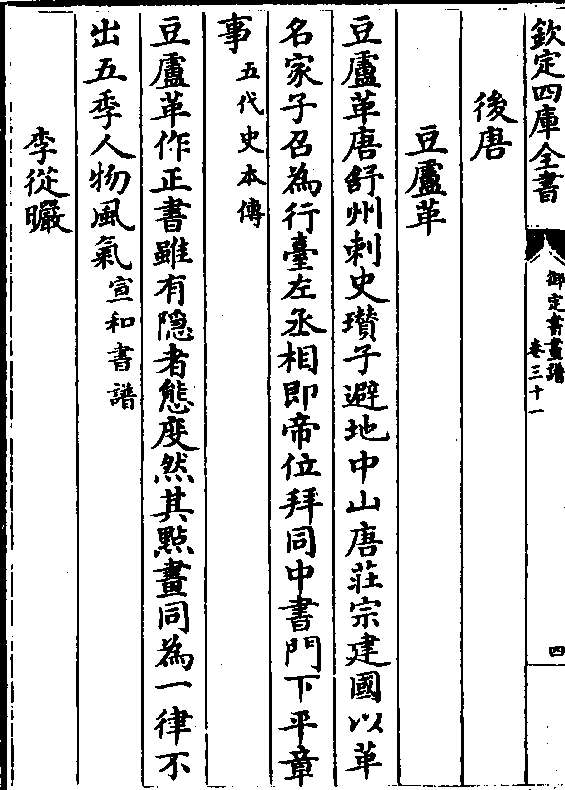 欽定四庫全書
御定書畫譜
卷三十一
四
後唐
豆盧革
豆盧革唐舒州刺史瓚子避地中山唐莊宗建國以革
名家子召為行臺左丞相即帝位拜同中書門下平章
事五代史本傳
豆盧革作正書雖有隠者態度然其㸃畫同為一律不
出五季人物風氣宣和書譜
李從曮